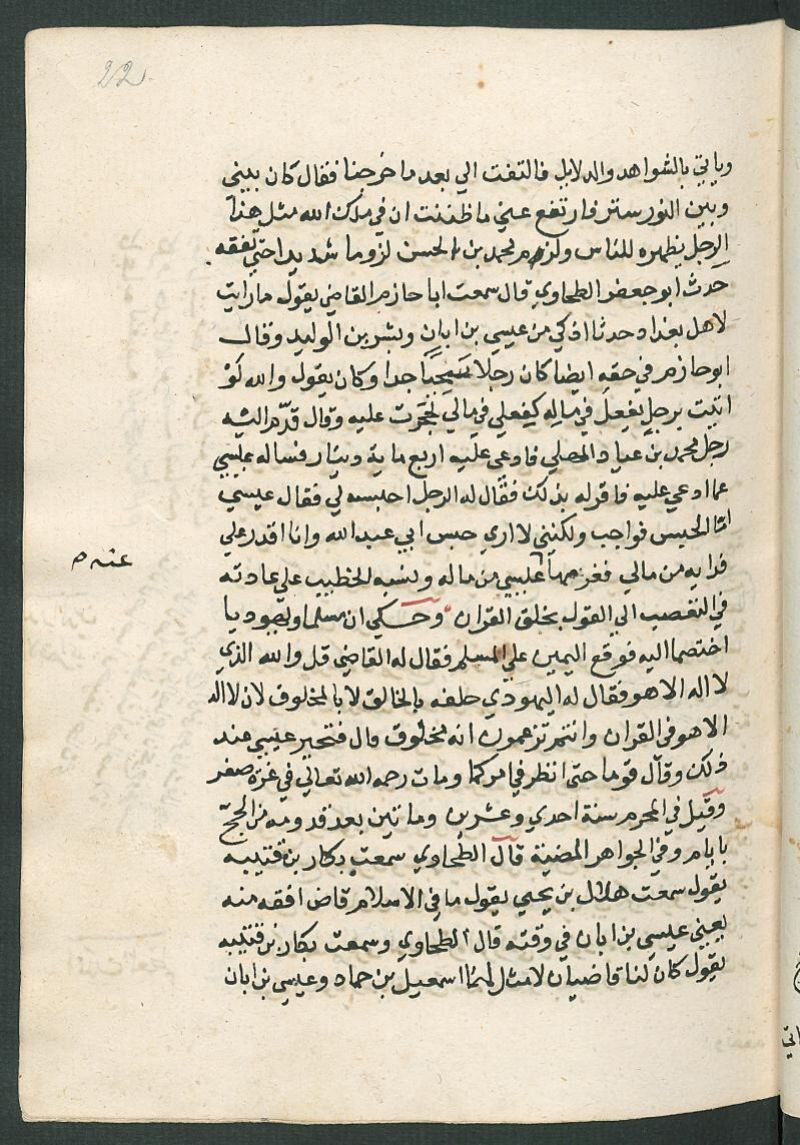 22
وياتي بالشواهد والدلايل فالتفت الي بعد ما خرجنا فقال كان بيني
وبين النور ستر فارتفع عني ما ظننت ان في ملك الله مثل هذا
الرجل يظهره للناس ولزم محمد بن الحسن لزوما شديدا حتي تفقه
حدث ابو جعفر الطحاوي قال سمعت ابا حازم القاضي يقول ما رايت
لاهل بغداد حدثا اذكي من عيسي بن ابان وبشر بن الوليد وقال
ابو حازم في حقه ايضا كان رجلا سخيا جدا وكان يقول والله لو
اتيت برجل يفعل في ماله كفعلي في مالي لحجرت عليه وقال قدم اليه
رجل محمد بن عباد المهلبي فادعي عليه اربع ماية دينار فساله عيسي
عما ادعي عليه فاقر له بذلك فقال له الرجل احبسه لي فقال عيسي
اما الحبس فواجب ولكنني لا اري حبس ابي عبد الله وانا اقدر علي
فدايه من مالي فغرمها عيسي من ماله ونسبه الخطيب علي عادته
عنه ص
في التعصب الي القول بخلق القران وحكي ان مسلما ويهوديا
اختصما اليه فوقع اليمين علي المسلم فقال له القاضي قل والله الذي
لا اله الا هو فقال له اليهودي حلفه بالخالق لا بالمخلوق لان لا اله
الا هو في القران وانتم تزعمون انه مخلوق قال فتحير عيسي عند
ذلك وقال قوما حتي انظر في امركما ومات رحمه الله تعالي في غرة صفر
وقيل في المحرم سنة احدي وعشرين وماتين بعد قدومه من الحج
بايام وفي الجواهر المضية قال الطحاوي سمعت بكار بن قتيبه
يقول سمعت هلال بن يحيي يقول ما في الاسلام قاض افقه منه
يعني عيسي بن ابان في وقته قال الطحاوي وسمعت بكار بن قتيبه
يقول كان لنا قاضيان لا مثل لهما اسمعيل بن حماد وعيسي بن ابان